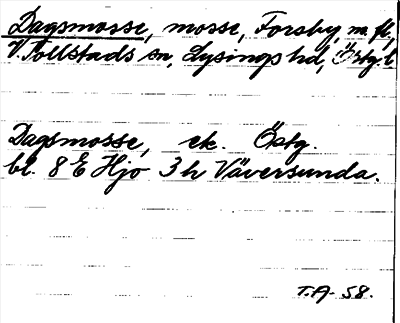 Dagsmosse, mosse, Forsby, m. fl,
V. Tollstads sn, Lysings hd, Östg. l
Dagsmosse, ek. Östg.
bl. 8 E Hjo 3 h Väversunda.
T.A. 58.